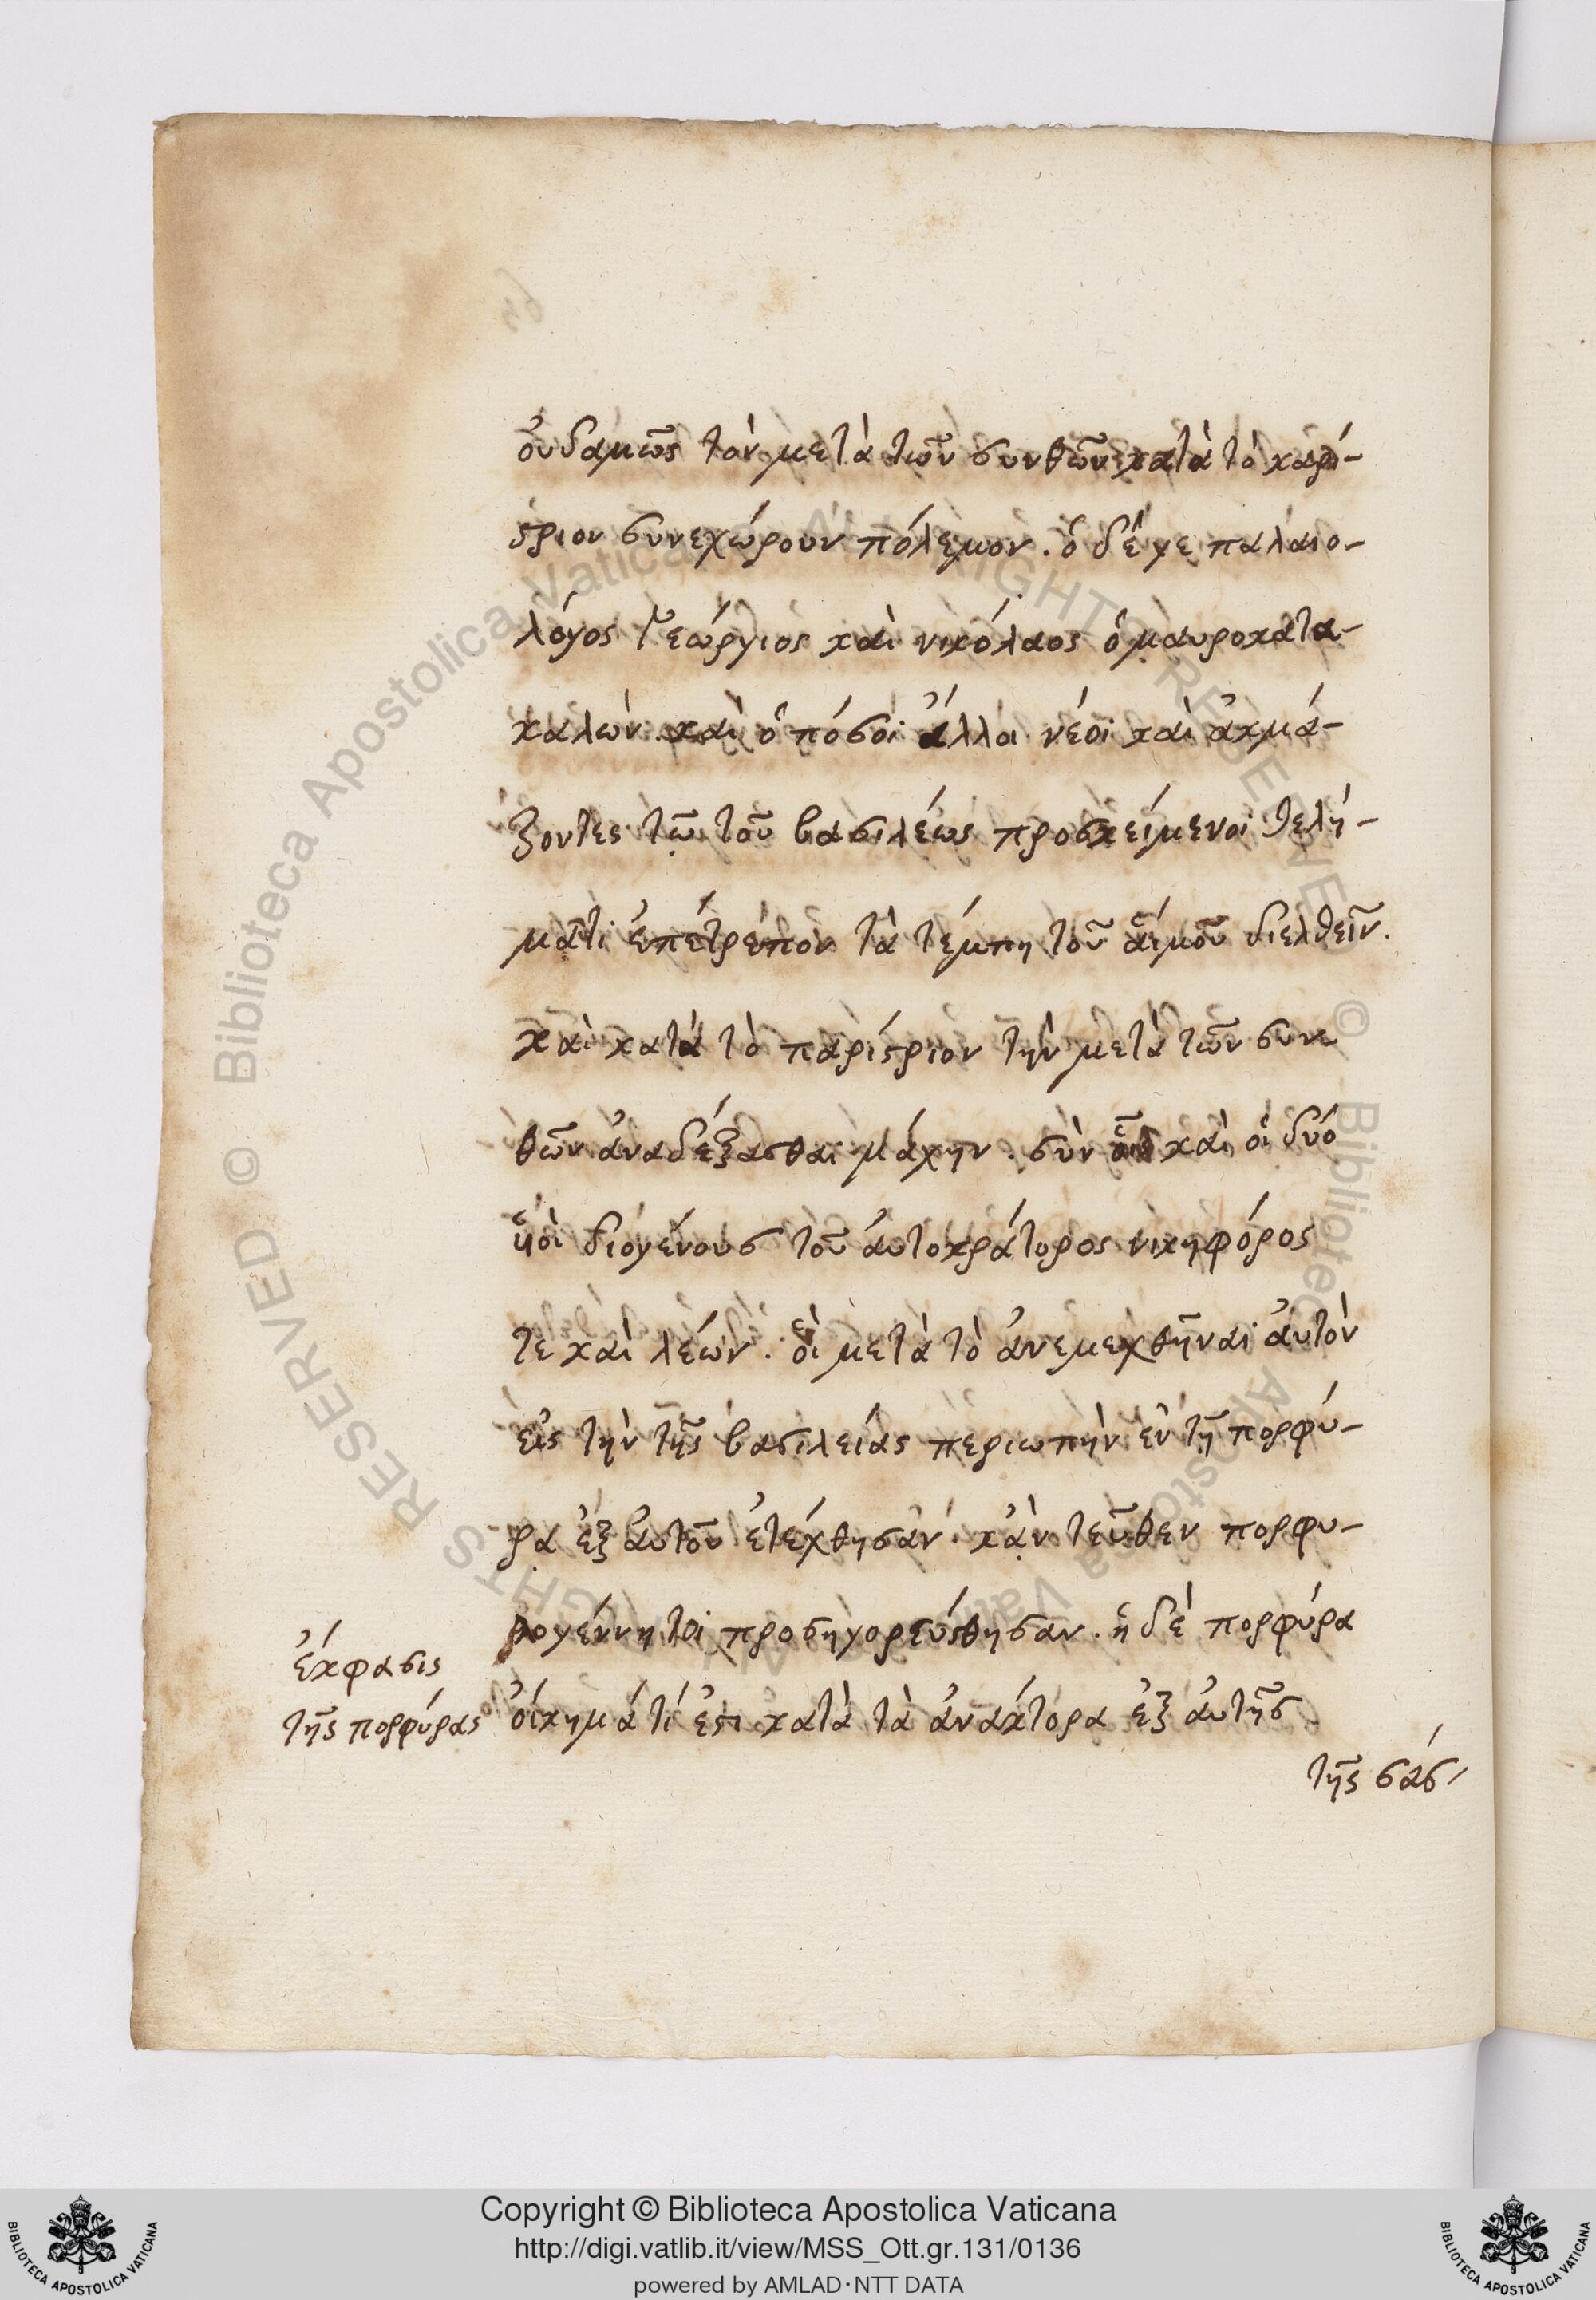 οὐδαμῶς τὸν μετὰ τῶν σκυθῶν κατὰ τὸ παρί-
στριον συνεχώρουν πόλεμον. ὁ δέ γε παλαιο-
λόγος Γεώργιος καὶ νικόλαος ὁ μαυροκατα-
καλών. καὶ ὁπόσοι ἄλλοι νέοι καὶ ἀκμά-
ζοντες τῷ τοῦ βασιλέως προσκείμενοι θελή-
ματι ἐπέτρεπον τὰ τέμπη τοῦ αἵμου διελθεῖν.
καὶ κατὰ τὸ παρίστριον τὴν μετὰ τῶν συν
θῶν ἀναδέξασθαι μάχην. σὺν οἷς καὶ οἱ δύο
υἱοὶ διογένους τοῦ αὐτοκράτορος νικηφόρος
τε καὶ λέων. οἳ μετὰ τὸ ἀνεμεχθῆναι αὐτὸν
εἰς τὴν τῆς βασιλείας περιωπὴν ἐν τῇ πορφύ-
ρᾳ ἐξ αὐτοῦ ἐτέχθησαν. κἀν τεῦθεν πορφυ-
ρογέννητοι προσηγορεύσθησαν. ἡ δὲ πορφύρα
οἴκημά τί ἐστι κατὰ τὰ ἀνάκτορα ἐξ αὐτῆς
τῆς
ἔκφρασις
τῆς πορφύρας
Copyright © Biblioteca Apostolica Vaticana
http://digi.vatlib.it/view/MSS_Ott.gr.131/0136
powered by AMLAD·NTT DATA
BIBLIOTECA APOSTOLICA VATICANA
BIBLIOTECA APOSTOLICA VATICANA